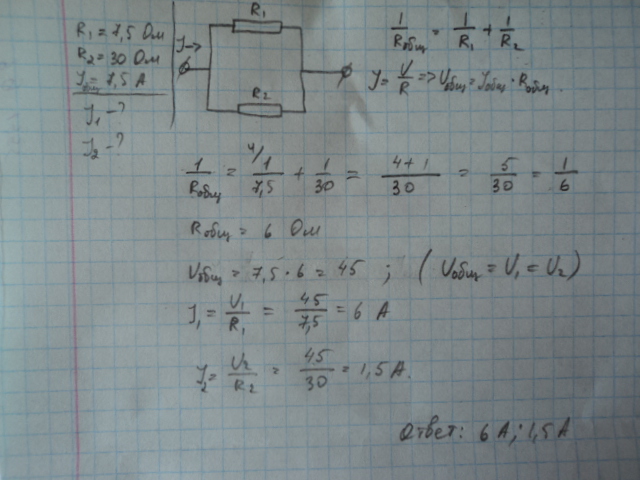 R₁ = 7,5 Ом
R₂ = 30 Ом
Jобщ = 7,5 А
J₁ - ?
J₂ - ?
J→
R₁
R₂
1/Rобщ = 1/R₁ + 1/R₂
J = U/R => Uобщ = Jобщ · Rобщ.
1/Rобщ = 4/ 1/7,5 + 1/30 = 4+1/30 = 5/30 = 1/6
Rобщ = 6 Ом
Uобщ = 7,5 · 6 = 45 ; ( Uобщ = U₁ = U₂ )
J₁ = U₁/R₁ = 45/7,5 = 6 А
J₂ = U₂/R₂ = 45/30 = 1,5 А.
Ответ: 6 А; 1,5 А